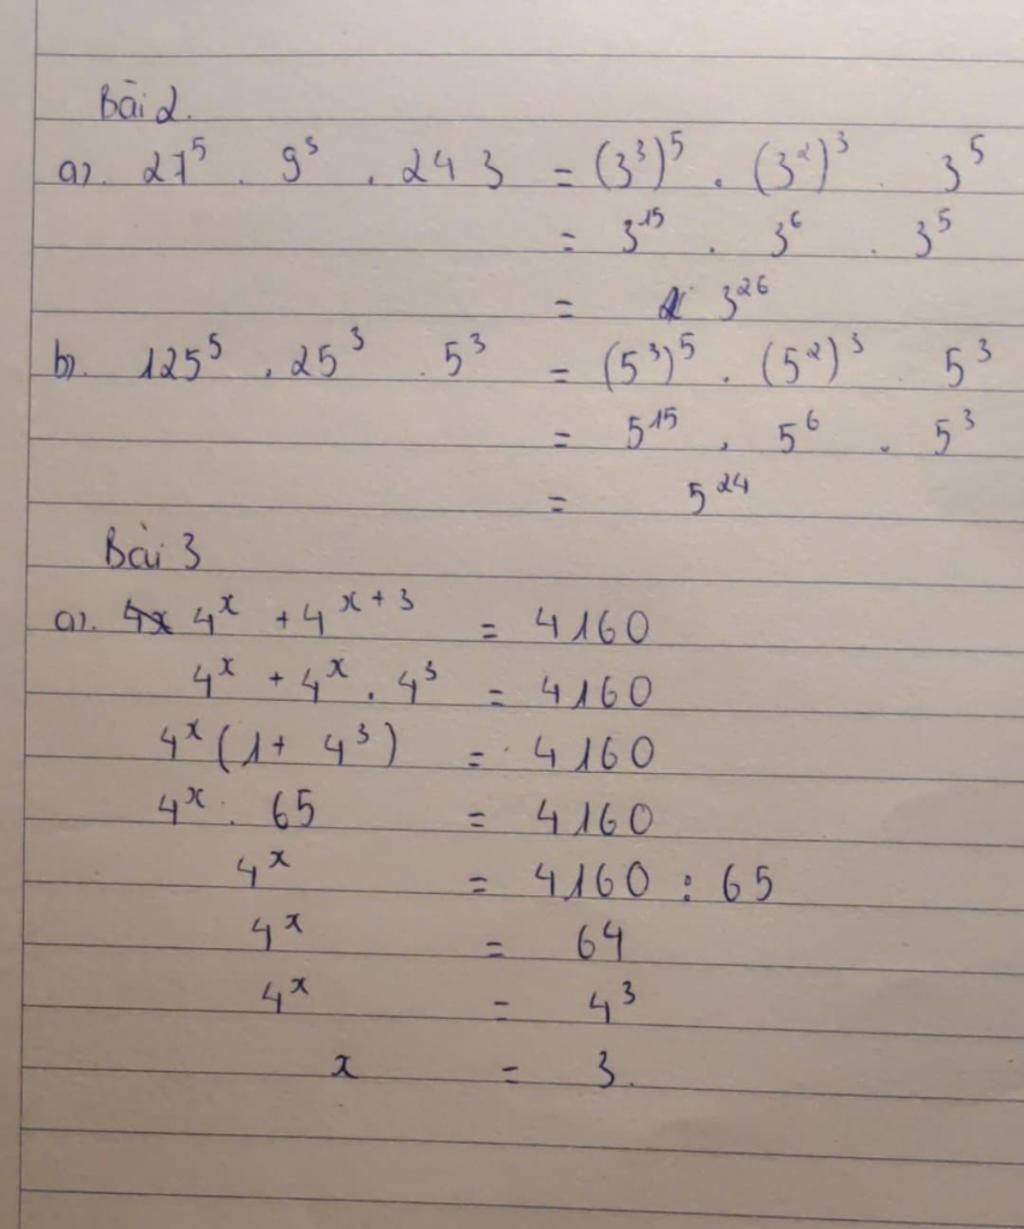 Bài 2.
a). 27⁵ . 9³ . 243 = (3³)⁵ . (3²)³ . 3⁵
= 3¹⁵ . 3⁶ . 3⁵
= 3²⁶
b). 125⁵ . 25³ . 5³ = (5³)⁵ . (5²)³ . 5³
= 5¹⁵ . 5⁶ . 5³
= 5²⁴
Bài 3
a). 4x 4ˣ + 4ˣ⁺³ = 4160
4ˣ + 4ˣ . 4³ = 4160
4ˣ (1 + 4³) = 4160
4ˣ . 65 = 4160
4ˣ = 4160 : 65
4ˣ = 64
4ˣ = 4³
x = 3.